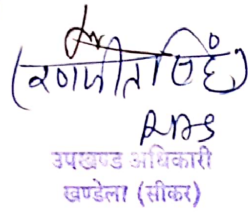 (रणजीत सिंह)
RAS
उपखण्ड अधिकारी
खण्डेला (सीकर)